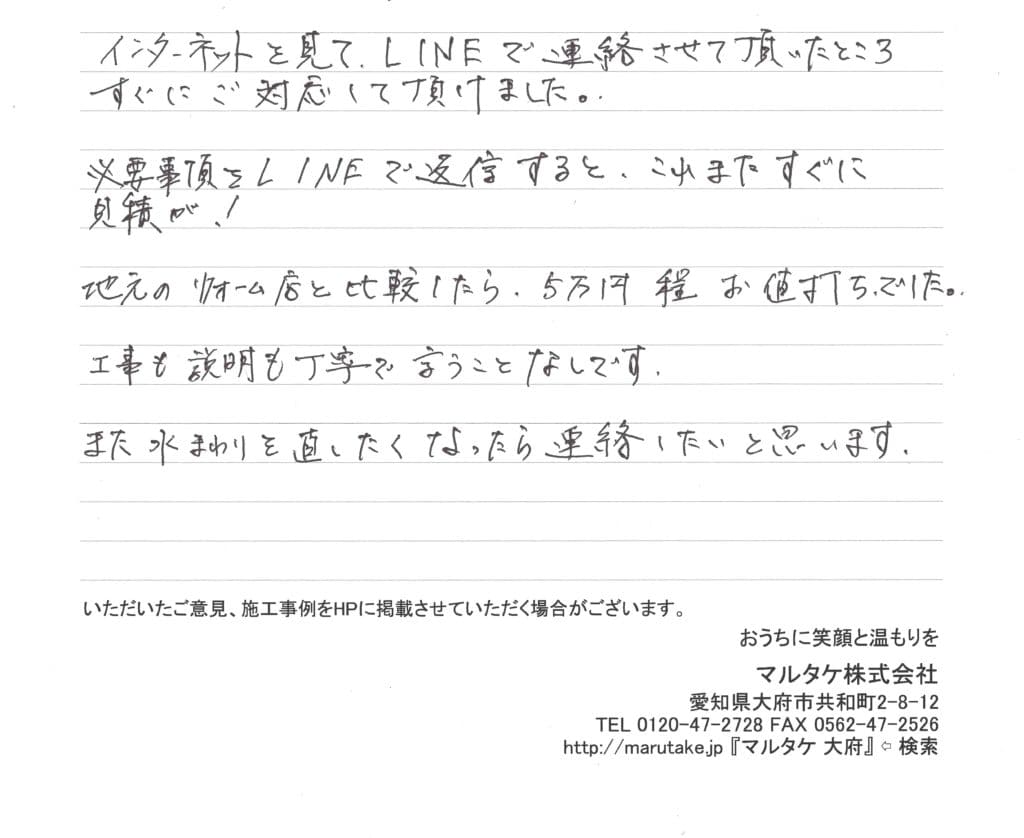 インターネットを見て、LINEで連絡させて頂いたところ
すぐにご対応して頂けました。
必要事項をLINEで返信すると、これまたすぐに
見積が!
地元のリフォーム店と比較したら、5万円程お値打ちでした。
工事も説明も丁寧で言うことなしです。
また水まわりを直したくなったら連絡したいと思います。
いただいたご意見、施工事例をHPに掲載させていただく場合がございます。
おうちに笑顔と温もりを
マルタケ株式会社
愛知県大府市共和町2-8-12
TEL 0120-47-2728 FAX 0562-47-2526
http://marutake.jp『マルタケ 大府』⇦ 検索